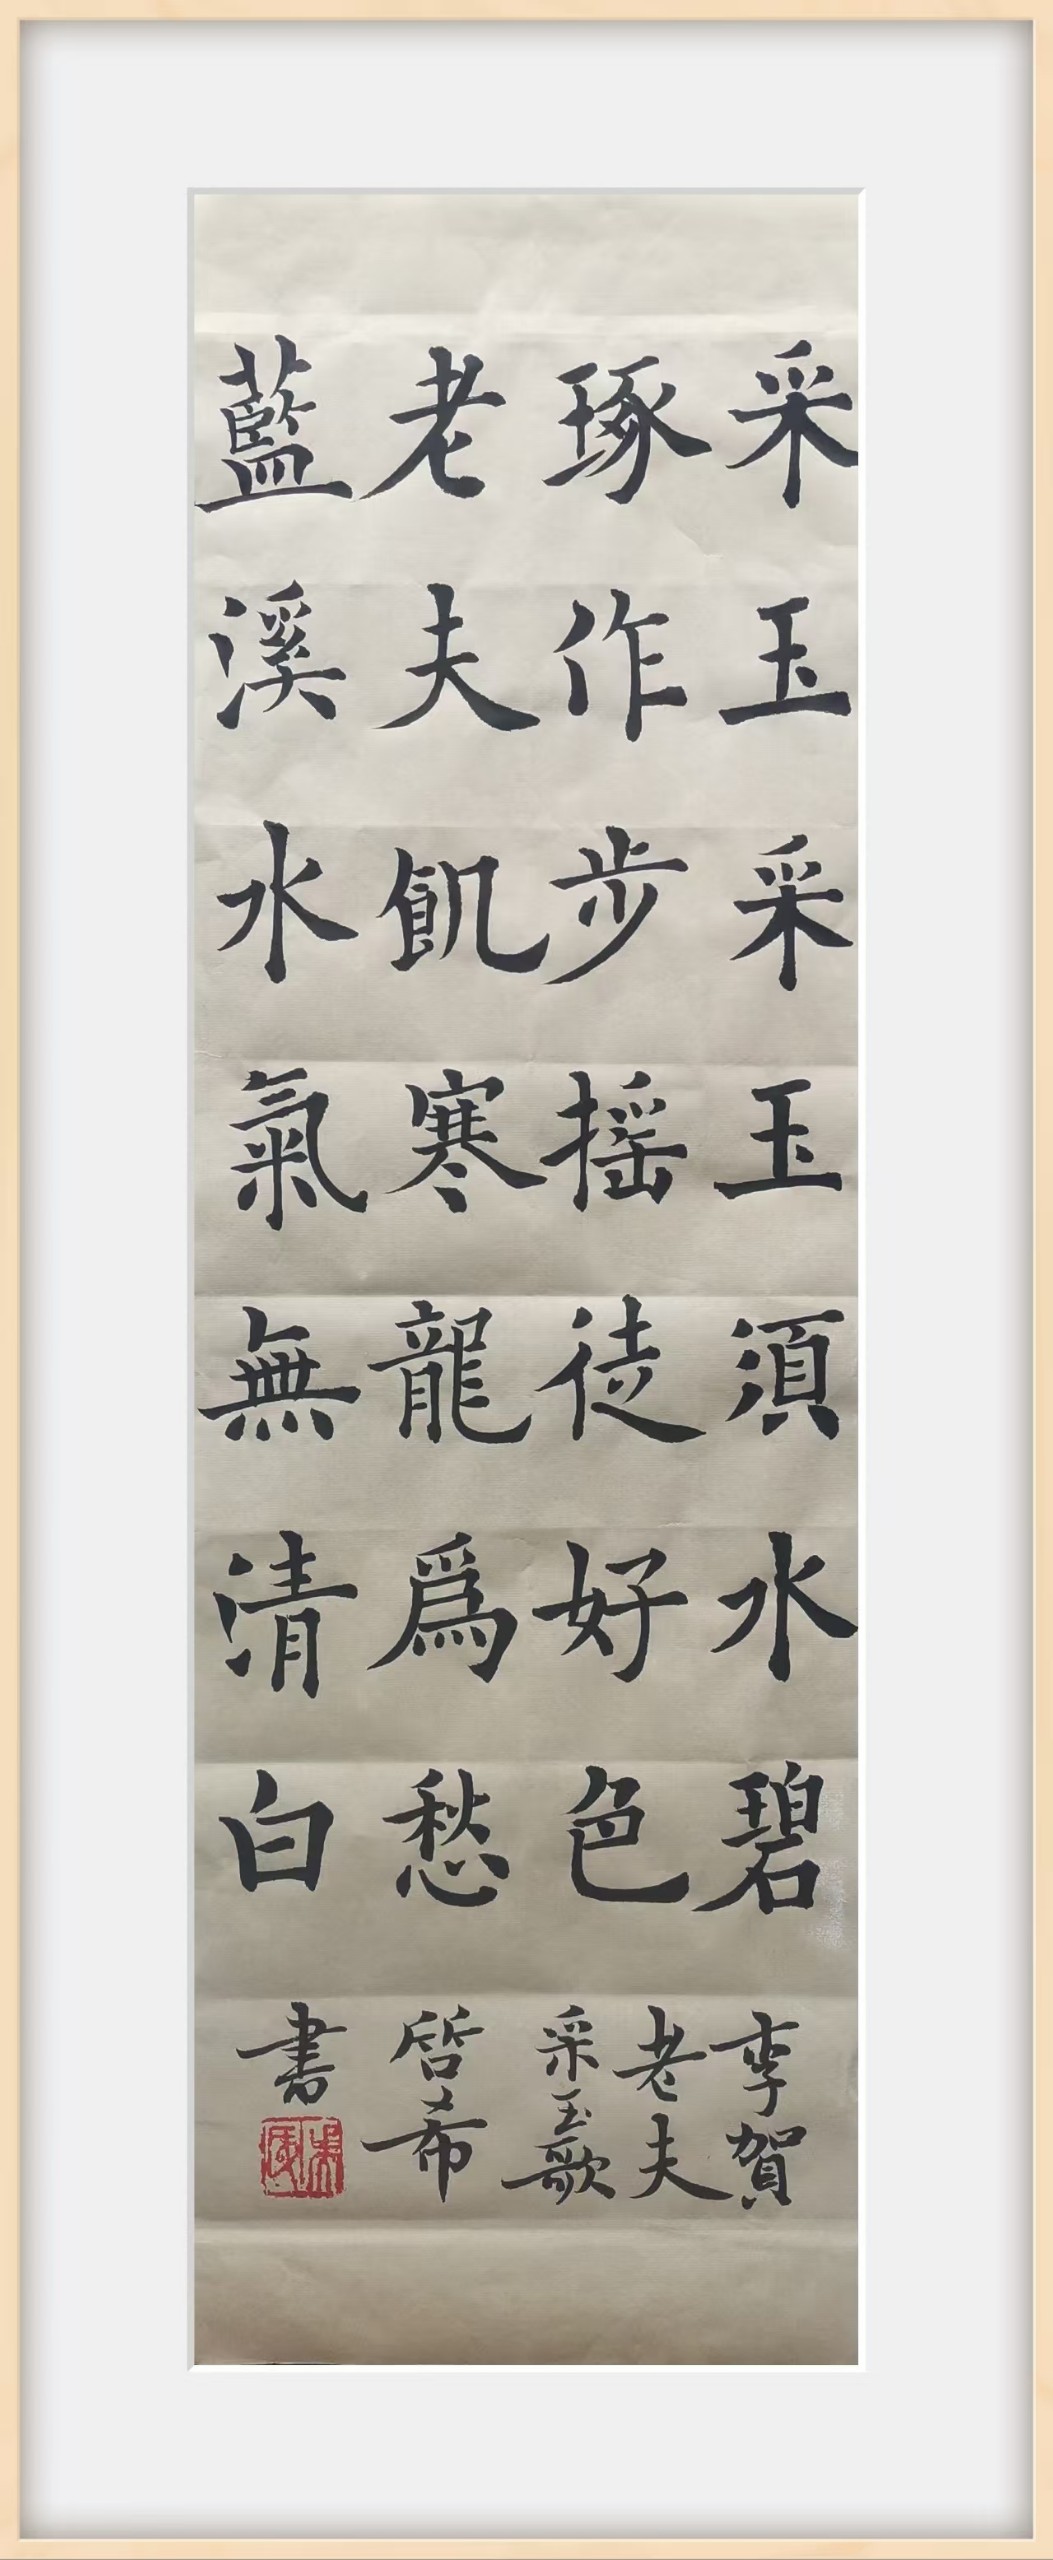 采玉采玉須水碧
琢作步摇徒好色
老夫飢寒龍爲愁
藍溪水氣無清白
李賀
老夫
采玉歌
啓希
書